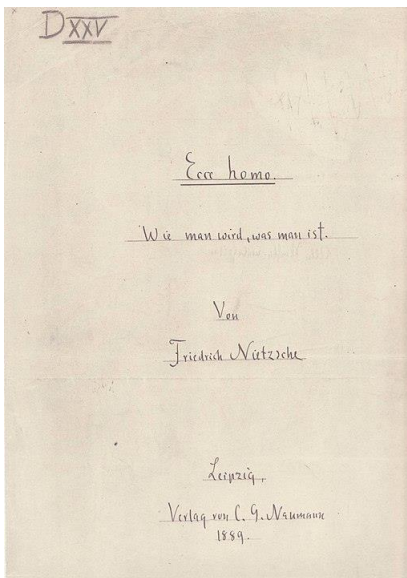 DXXV
Ecce homo.
Wie man wird, was man ist.
Von
Friedrich Nietzsche
Leipzig,
Verlag von C. G. Naumann
1889.